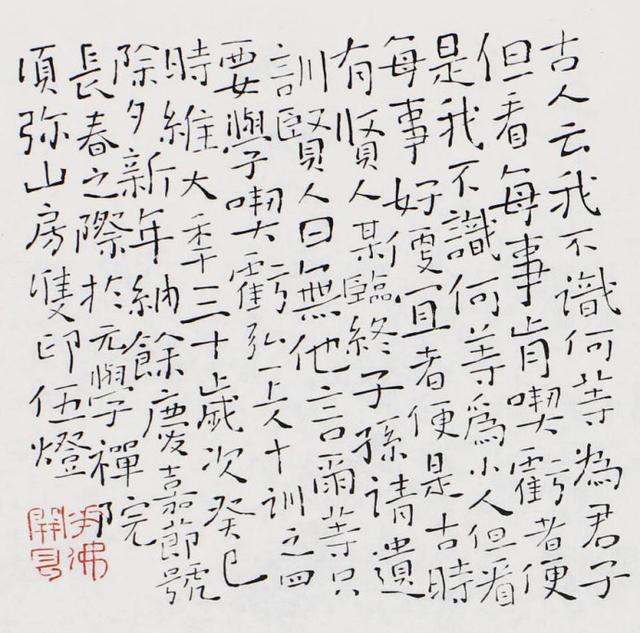 古人云我不識何等為君子
但看每事肯喫虧者便
是我不識何等為小人但看
每事好便宜者便是古時
有賢人某臨終子孫請遺
訓賢人曰無他言爾等只
要學喫虧弘一上人十訓之四
時維大年三十歲次癸巳
除夕新年納餘慶嘉節號
長春之際於元學禪院
須弥山房雙印伍燈